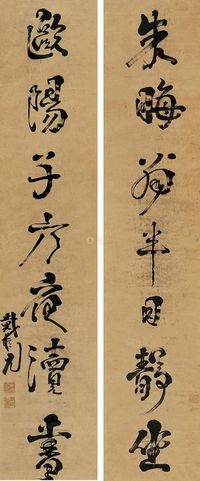 朱晦翁半日靜坐
歐陽子方夜讀書
戴彬元